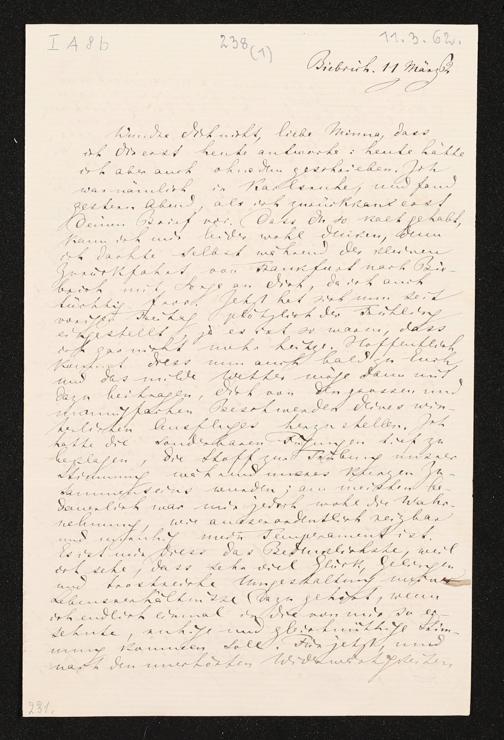 I A 8b
238
(1)
11.3.62.
Biebrich. 11 März 62
Wundre Dich nicht, liebe Minna, dass
ich Dir erst heute antworte: heute hätte
ich aber auch ohnedem geschrieben. Ich
war nämlich in Karlsruhe, und fand
gestern Abend, als ich zurückkam erst
Deinen Brief vor. Dass Du so kalt gehabt,
kann ich mir leider wohl denken, denn
ich dachte selbst während der kleinen
Zurückfahrt von Frankfurt nach Bie-
brich mit Sorge an Dich, da ich auch
tüchtig fror. Jetzt hat sich nun seit
vorigen Freitag plötzlich der Frühling
eingestellt, ja es ist so warm, dass
ich gar nicht mehr heitze. Hoffentlich
kommt diess nun auch bald zu Euch,
und das milde Wetter möge dann mit
dazu beitragen, Dich von den grossen und
mannigfachen Beschwerden Deines win-
terlichen Ausfluges herzustellen. Ich
hatte die sonderbaren Fügungen tief zu
beklagen, die Stoff zur Trübung unserer
Stimmung während unseres kurzen Zu-
sammenseins wurden; am meisten be-
dauerlich war mir jedoch wohl die Wahr-
nehmung, wie ausserordentlich reizbar
und unruhig mein Temperament ist.
Es ist mir diess das Bedenklichste, weil
ich sehe, dass sehr viel Glück, Gelingen
und trostreiche Umgestaltung meiner
Lebensverhältnisse dazu gehört, wenn
ich endlich einmal in die von mir so er-
sehnte, ruhige und gleichmüthige Stim-
mung kommen soll. Für jetzt, und
nach den unerhörten Widerwärtigkeiten
231.